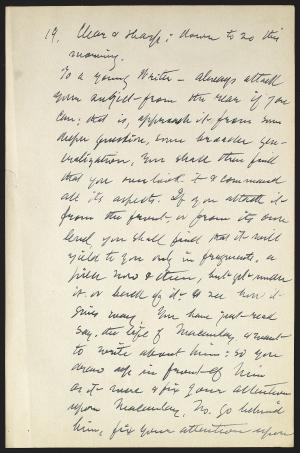 19. Clear & sharp; down to 20 this
morning.
To a young Writer – always attack
your subject – from the rear if you
can; that is, approach it from some
deeper question, some broader gen-
eralization, You shall then find
that you overlook it & command
all its aspects. If you attack it
from the front – or from its own
level, you shall find that it will
yield to you only in fragments, a
little now & then, but get under
it, or back of it – & see how it
gives way. You have just read
say, the life of Macaulay, & want
to write about him; so you
draw up in front of him
as it were & fix your attention
upon Macaulay. No. Go behind
him, fix your attention upon